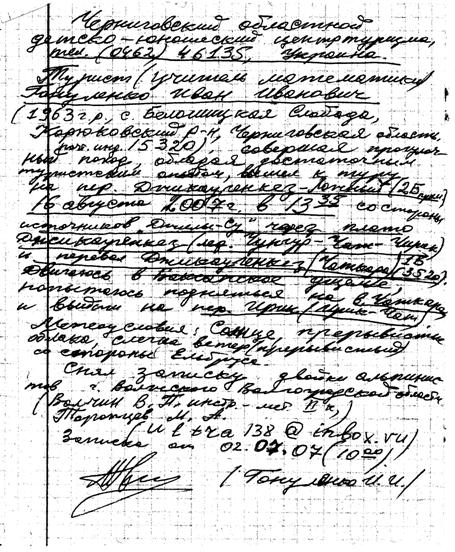 Черниговский областной
детско-юношеский центр туризма,
тел. (0462) 46135, Украина.
Турист (учитель математики)
Гопуленко Иван Иванович
(1963 г.р., с. Белошицкая Слобода,
Корюковский р-н, Черниговская область,
поч. инд. 15320), совершая
ный поход, обладая достаточным
туристским опытом, вышел к туру
на пер. Джикаугенкез-Ложный (2Б
16 августа 2007 г. в 13 35 со стороны
источников Джилы-Су" через плато
Джикаугенкез (лед. Чунгур-Чат-Чиран)
и перевал Джикаугенкез (Чаткара) 1Б (3520).
Двигаюсь в Баксанское ущелье,
попытаюсь подняться на в. Чаткара
и выйти на пер. Ирик (Ирик-Чат)
Метеоусловия: Солнце, прерывистые
облака, слегка ветер (прерывистый)
со стороны Эльбруса
Снял записку двойки альпинис-
тов г. Волжского Волгоградской области
(Волчин В, Т. инстр.-мет. II к.,
Торопцев М. А.
138@inbox.ru)
Записка от 02.07.07 (10 00).
/Гопуленко И.И./